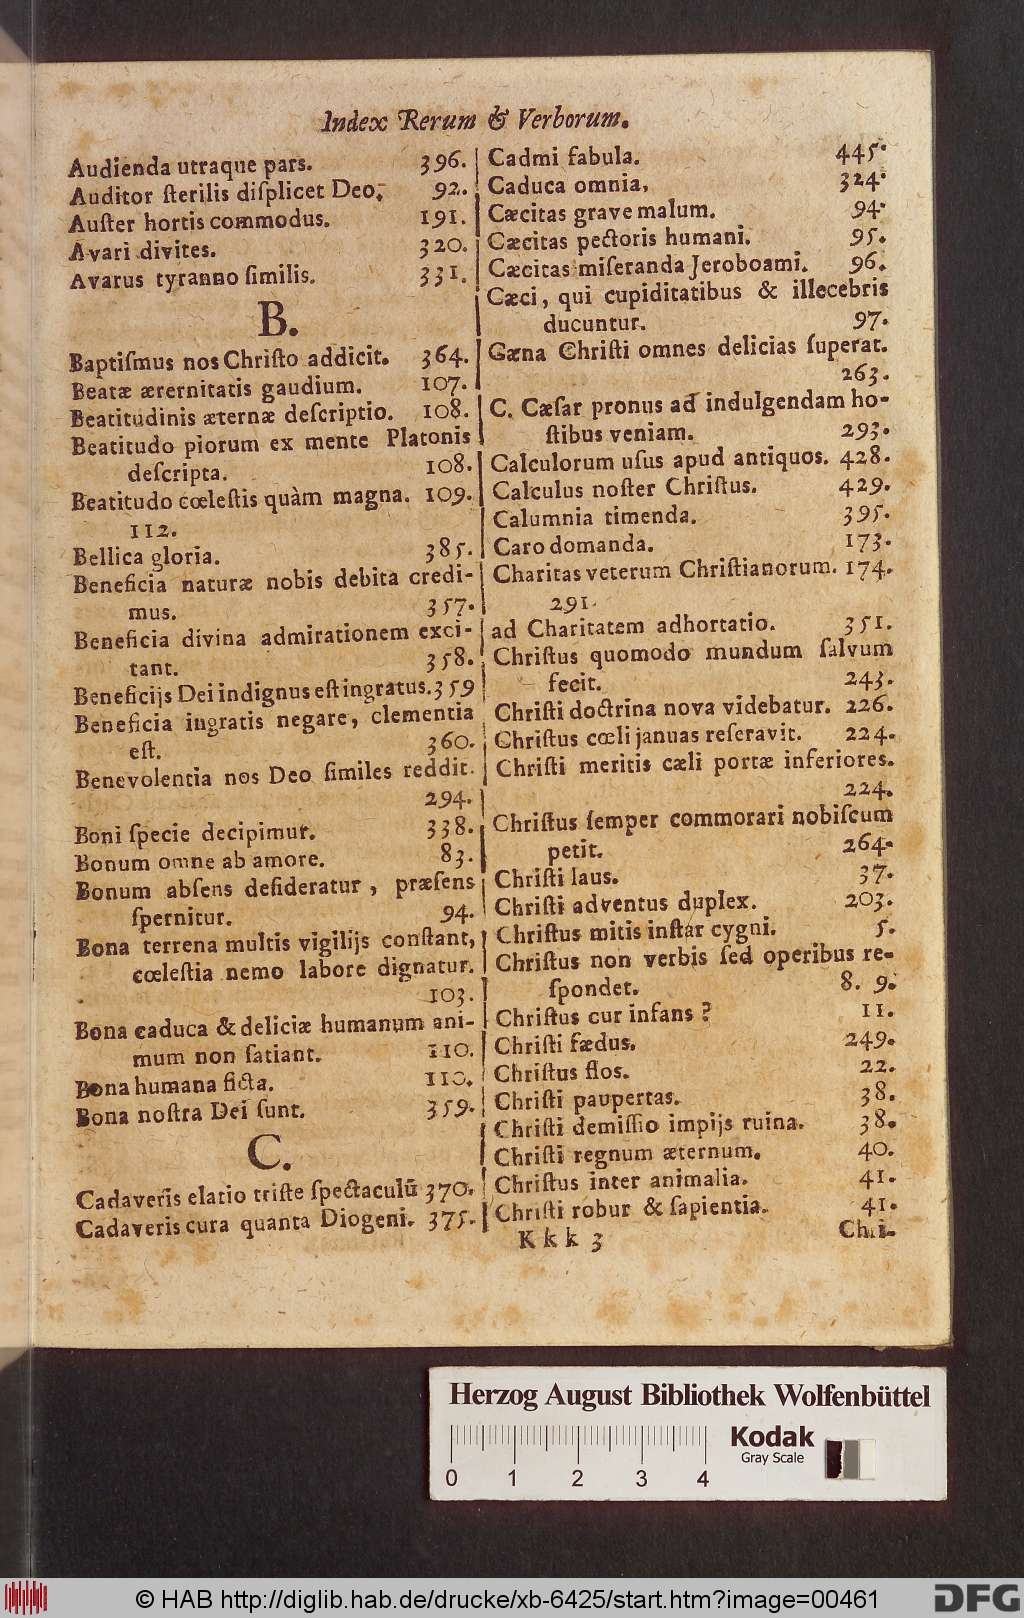 Index Rerum & Verborum.
Audienda utraque pars. 396.
Auditor ſterilis diſplicet Deo. 92.
Auſter hortis commodus. 191.
Avari divites. 320.
Avarus tyranno ſimilis. 331.
B.
Baptiſmus nos Chriſto addicit. 364.
Beatæ ærernitatis gaudium. 107.
Beatitudinis æternæ deſcriptio. 108.
Beatitudo piorum ex mente Platonis
deſcripta. 108.
Beatitudo cœleſtis quàm magna. 109.
112.
Bellica gloria. 385.
Beneficia naturæ nobis debita credi-
mus. 357.
Beneficia divina admirationem exci-
tant. 358.
Beneficijs Dei indignus eſt ingratus. 359
Beneficia ingratis negare, clementia
eſt. 360.
Benevolentia nos Deo ſimiles reddit.
294.
Boni ſpecie decipimur. 338.
Bonum omne ab amore. 83.
Bonum abſens deſideratur, præſens
ſpernitur. 94.
Bona terrena multis vigilijs conſtant,
cœleſtia nemo labore dignatur.
103.
Bona caduca & deliciæ humanum ani-
mum non ſatiant. 110.
Bona humana ficta. 110.
Bona noſtra Dei ſunt. 359.
C.
Cadaveris elatio triſte ſpectaculũ 370.
Cadaveris cura quanta Diogeni. 375.
Cadmi fabula. 445.
Caduca omnia. 324.
Cæcitas grave malum. 94.
Cæcitas pectoris humani. 95.
Cæcitas miſeranda Jeroboami. 96.
Cæci, qui cupiditatibus & illecebris
ducuntur. 97.
Cæna Chriſti omnes delicias ſuperat.
263.
C. Cæſar pronus ad indulgendam ho-
ſtibus veniam. 293.
Calculorum uſus apud antiquos. 428.
Calculus noſter Chriſtus. 429.
Calumnia timenda. 395.
Caro domanda. 173.
Charitas veterum Chriſtianorum. 174.
291.
ad Charitatem adhortatio. 351.
Chriſtus quomodo mundum ſalvum
fecit. 243.
Chriſti doctrina nova videbatur. 226.
Chriſtus cœli januas reſeravit. 224.
Chriſti meritis cæli portæ inferiores.
224.
Chriſtus ſemper commorari nobiſcum
petit. 264.
Chriſti laus. 37.
Chriſti adventus duplex. 203.
Chriſtus mitis inſtar cygni. 5.
Chriſtus non verbis ſed operibus re-
ſpondet. 8. 9.
Chriſtus cur infans? 11.
Chriſti fædus. 249.
Chriſtus flos. 22.
Chriſti paupertas. 38.
Chriſti demiſſio impijs ruina. 38.
Chriſti regnum æternum. 40.
Chriſtus inter animalia. 41.
Chriſti robur & ſapientia. 41.
Kkk 3 Chri-
Herzog August Bibliothek Wolfenbüttel
Kodak
Gray Scale
0 1 2 3 4
© HAB http://diglib.hab.de/drucke/xb-6425/start.htm?image=00461
DFG